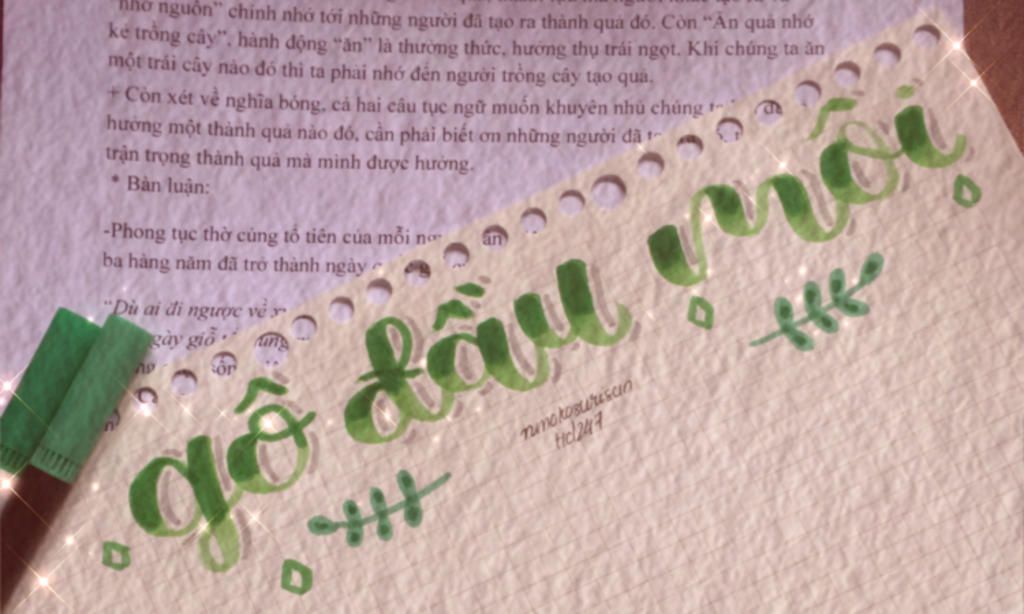 nhớ nguồn" chính nhớ tới những người đã tạo ra thành quả đó. Còn "Ăn quả nhớ
kẻ trồng cây", hành động "ăn" là thưởng thức, hưởng thụ trái ngọt. Khi chúng ta ăn
một trái cây nào đó thì ta phải nhớ đến người trồng cây tạo quả.
+ Còn xét về nghĩa bóng, cả hai câu tục ngữ muốn khuyên nhủ chúng
hưởng một thành quả nào đó, cần phải biết ơn những người đã
trận trọng thành quả mà mình được hưởng.
* Bàn luận:
-Phong tục thờ cúng tổ tiên của mỗi
ba hàng năm đã trở thành ngày
"Dù ai đi ngược về
gày giỗ
gô đầu mỗi